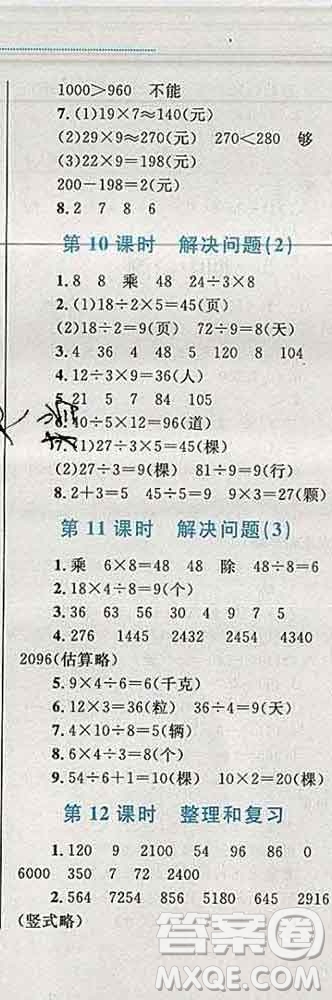 1000>960　不能
7.(1)19×7≈140(元)
(2)29×9≈270(元)　270<280　够
(3)22×9=198(元)
200-198=2(元)
8.2　7　8　6
第10课时　解决问题(2)
1.8　8　乘　48　24÷3×8
2.(1)18÷2×5=45(页)
(2)18÷2=9(页)　72÷9=8(天)
3.4　36　4　48　5　120　8　104
4.12÷3×9=36(人)
5.21　5　7　84　105
6.40÷5×12=96(道)
7.(1)27÷3×5=45(棵)
(2)27÷3=9(棵)　81÷9=9(行)
8.2+3=5　45÷5=9　9×3=27(颗)
第11课时　解决问题(3)
1.乘　6×8=48　48　除　48÷8=6
2.18×4÷8=9(个)
3.36　20　56　30　4　9　7　5
4.276　1445　2432　2454　4340
2096(估算略)
5.9×4÷6=6(千克)
6.12×3=36(粒)　36÷4=9(天)
7.4×10÷8=5(辆)
8.6×4÷3=8(个)
9.54÷6+1=10(棵)　10×2=20(棵)
第12课时　整理和复习
1.120　9　2100　54　96　86　0
6000　350　7　72　2400
2.564　7254　856　5180　645　2916
(竖式略)
答案圈
MXQE.COM